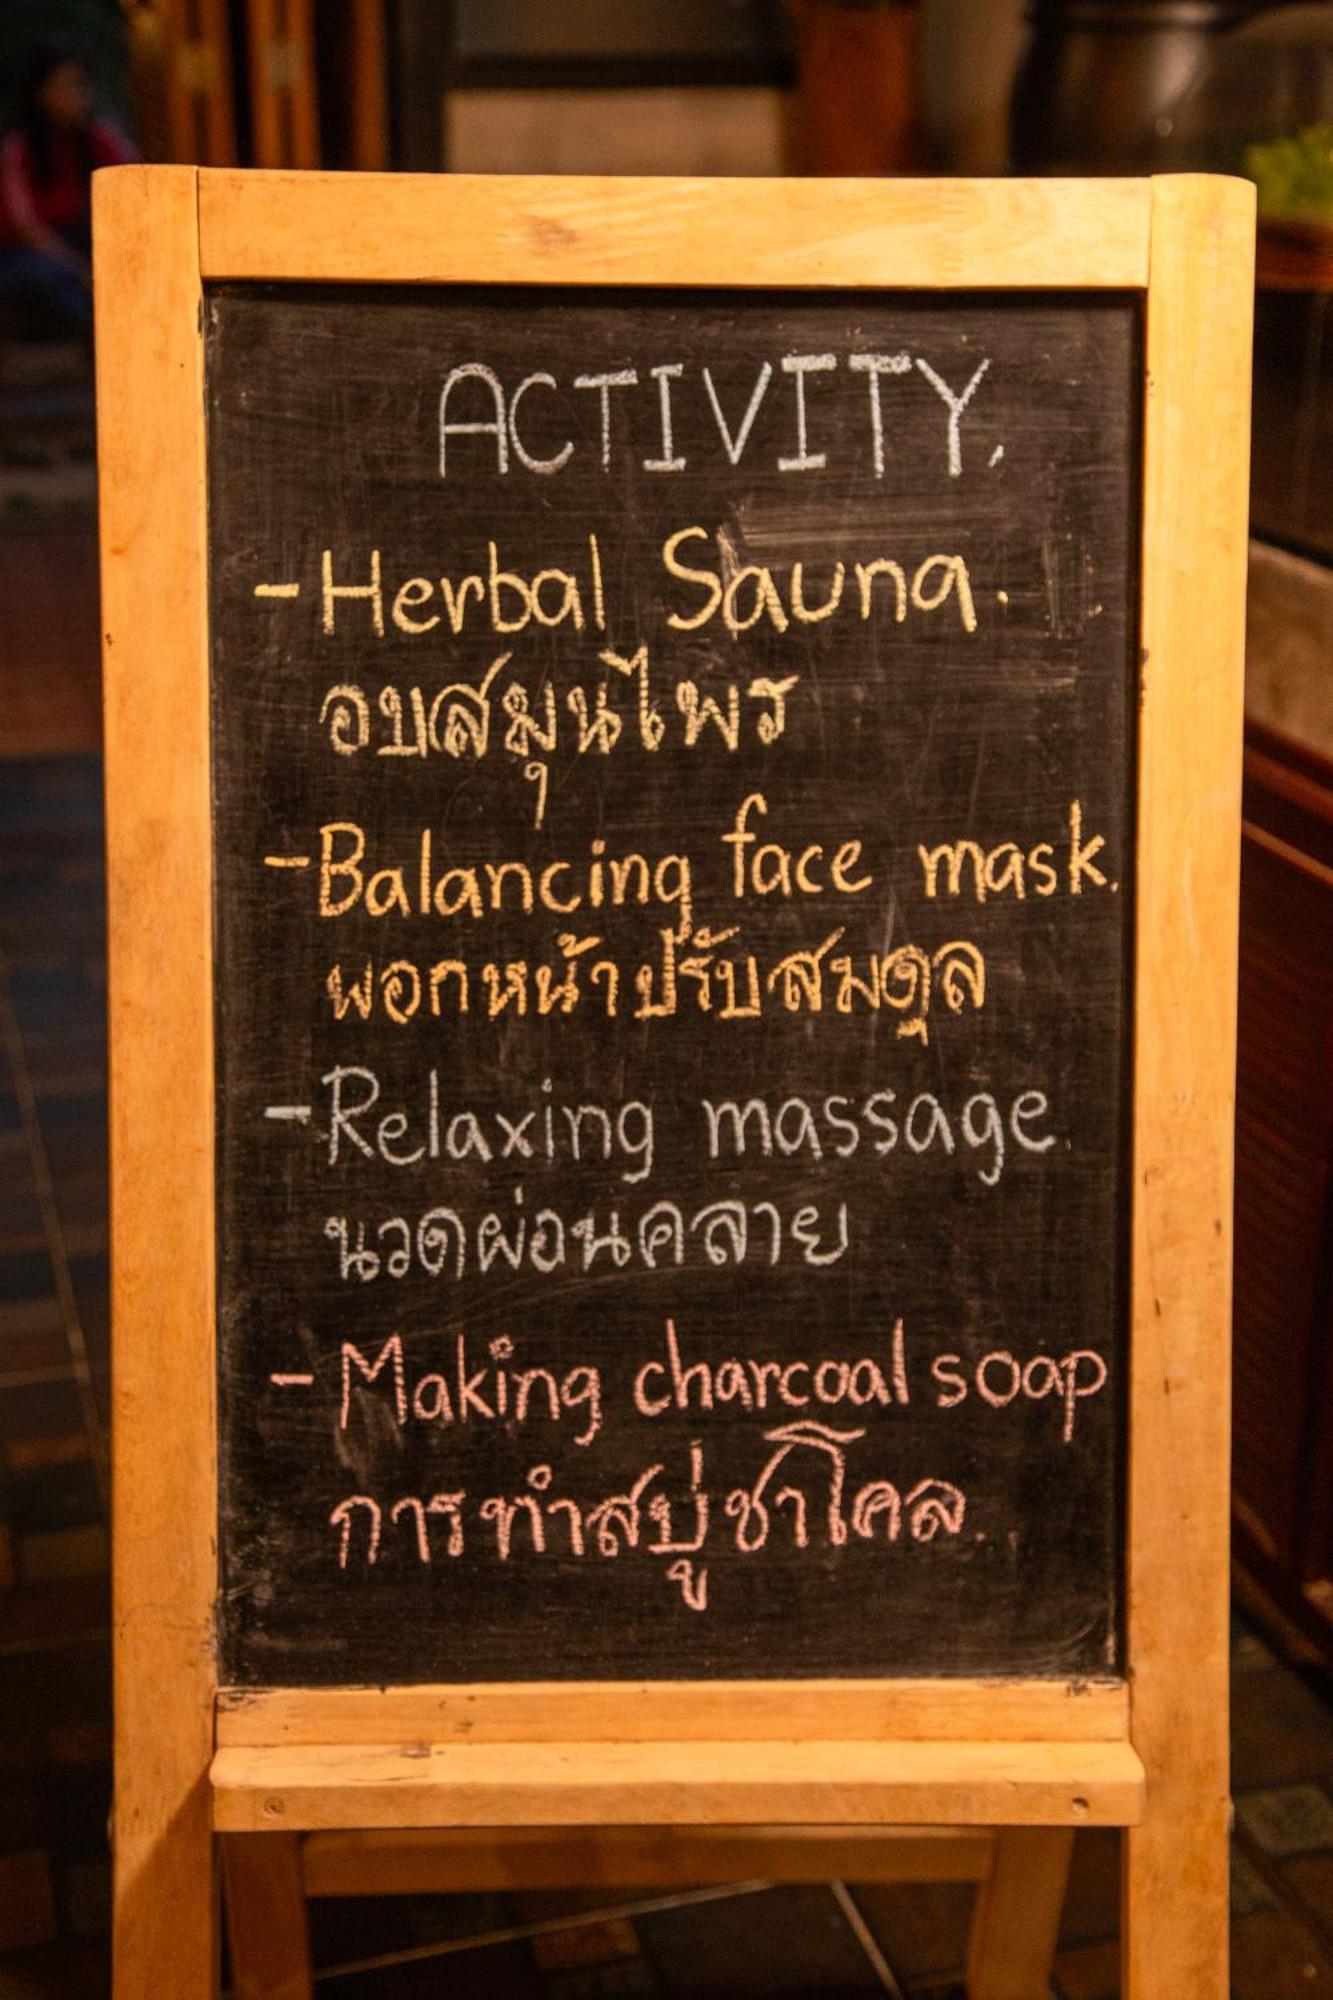 ACTIVITY.
- Herbal Sauna.
อบสมุนไพร
- Balancing face mask.
พอกหน้าปรับสมดุล
- Relaxing massage.
นวดผ่อนคลาย
- Making charcoal soap
การทำสบู่ชาโคล